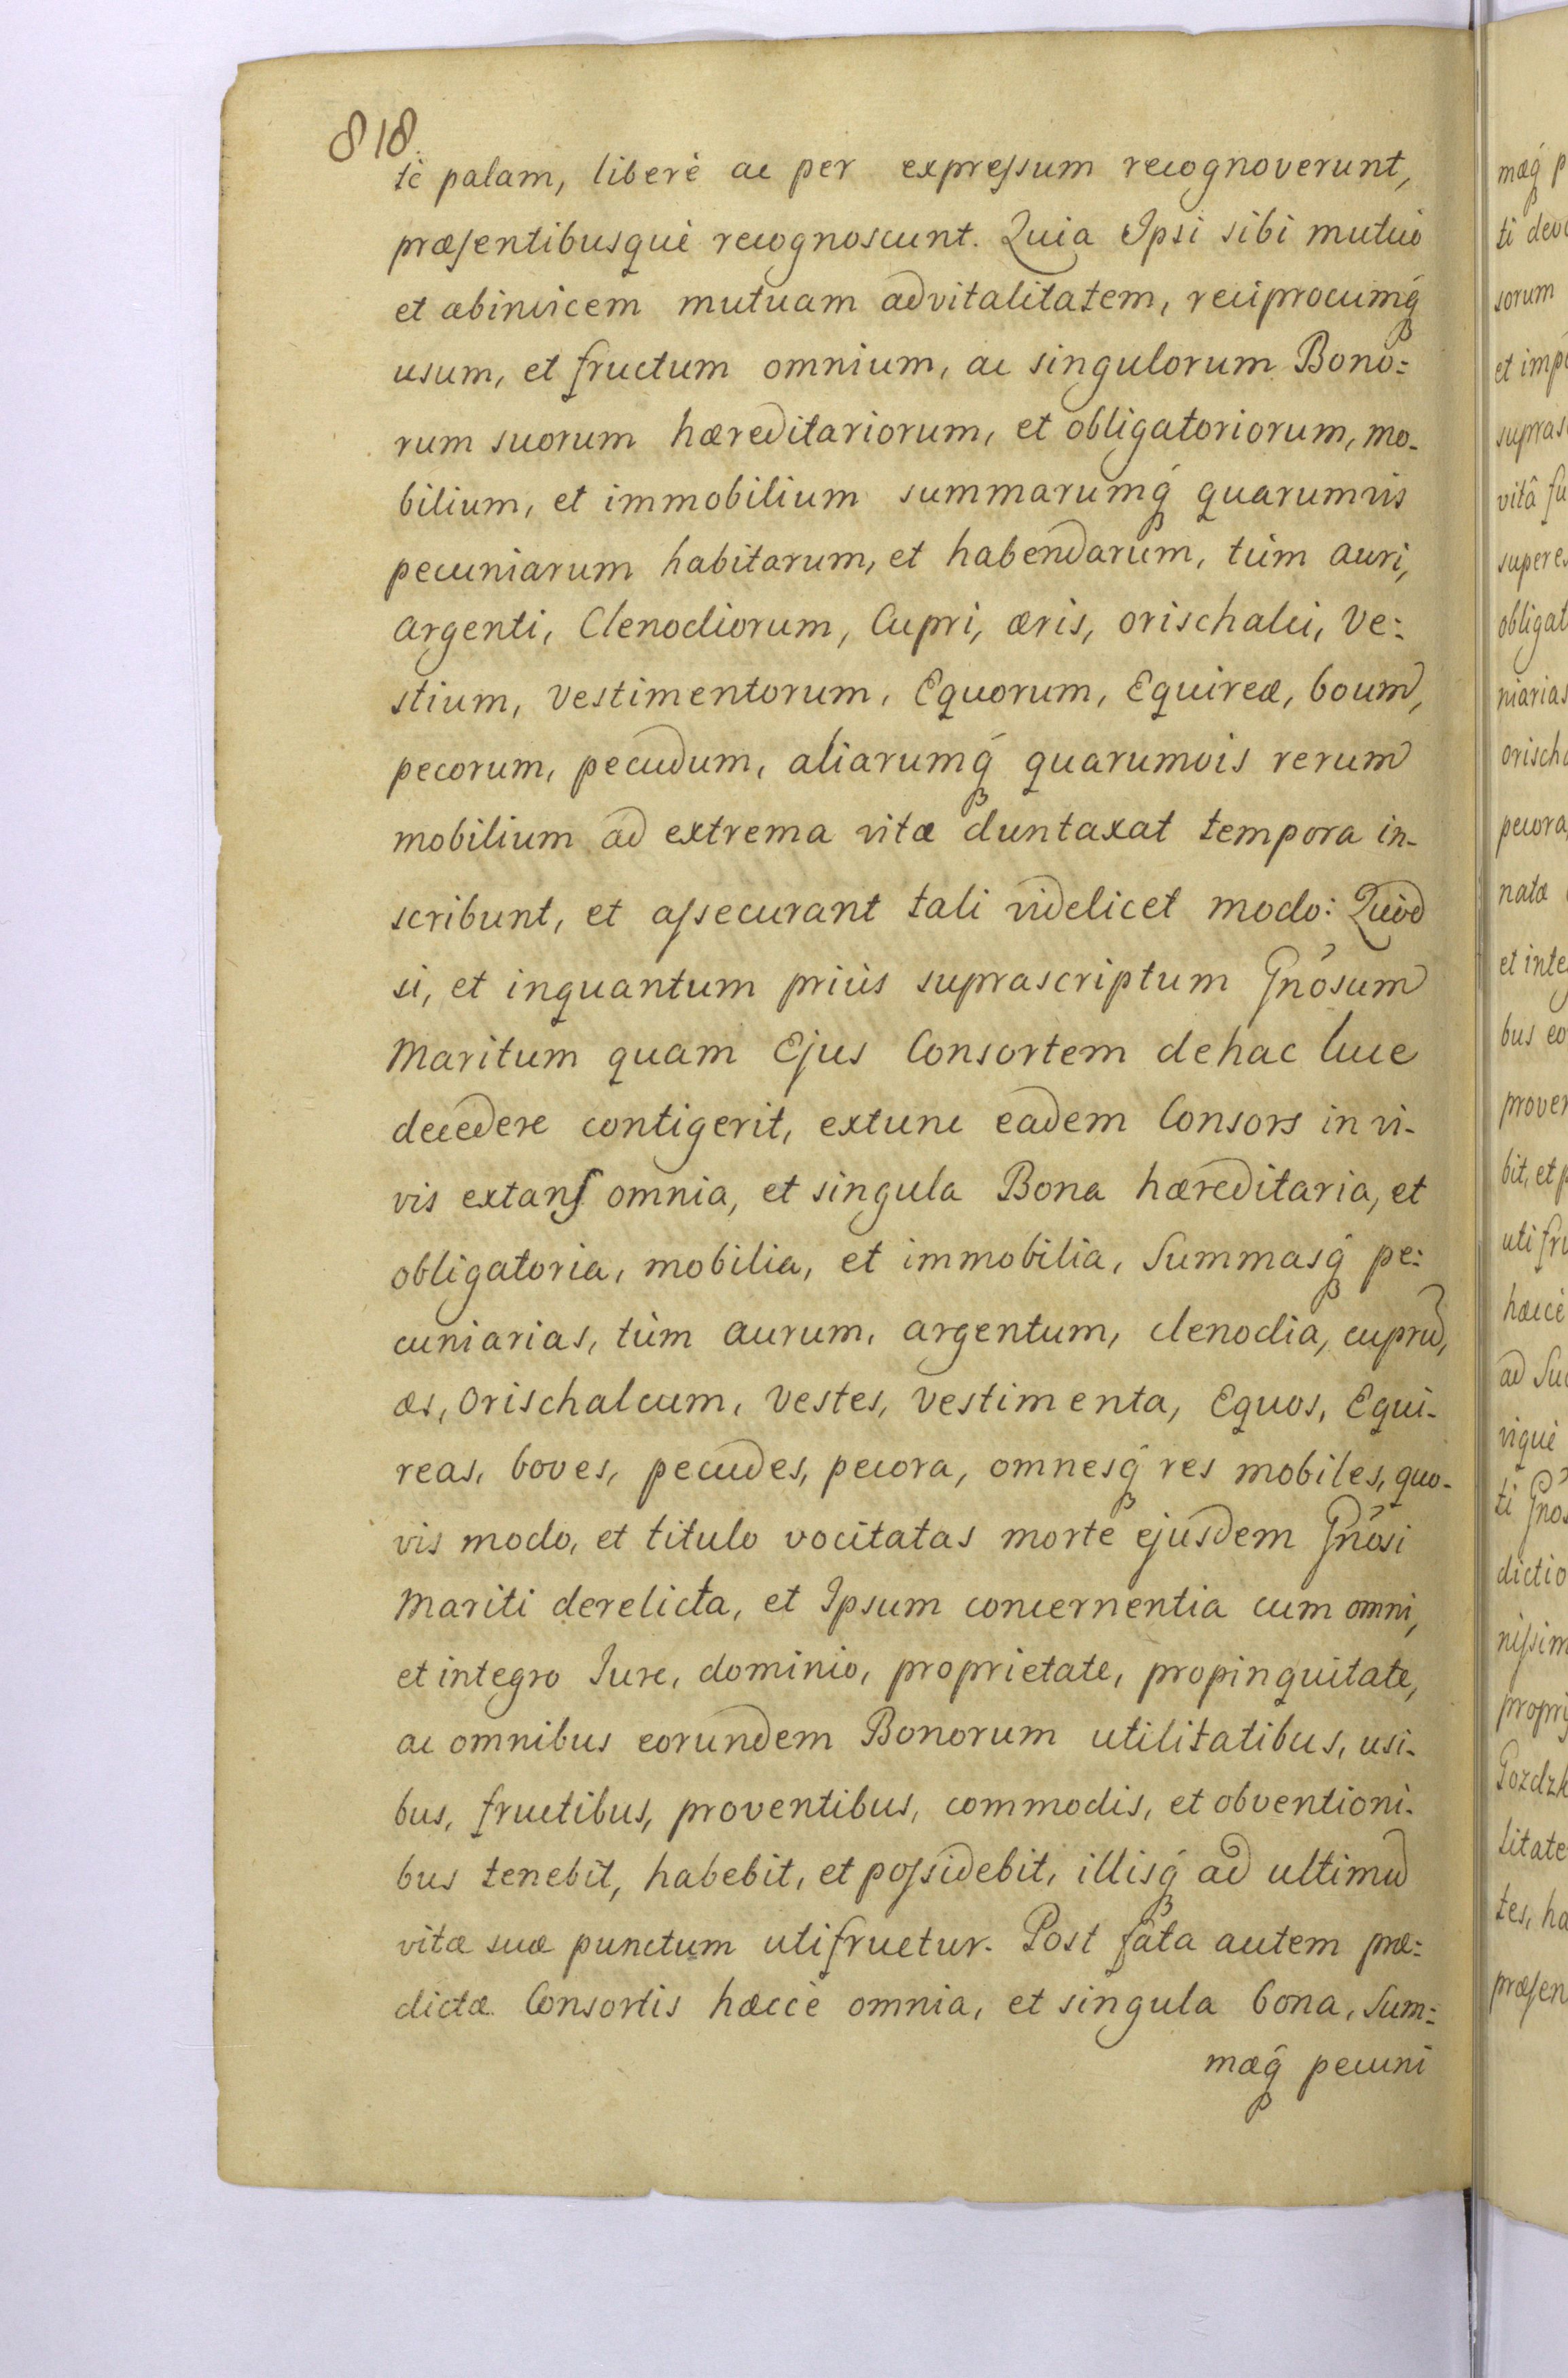 818.
tè palam, liberè ac per expreſsum recognoverunt,
præſentibusquè recognoscunt. Quia Ipsi sibi mutuò
et abinvicem mutuam advitalitatem, reciprocumq́
usum, et fructum omnium, ac singulorum Bono:
rum suorum hæreditariorum, et obligatoriorum, mo-
bilium, et immobilium summarumq́ quarumvis
pecuniarum habitarum, et habendarum, tùm auri,
argenti, Clenodiorum, Cupri, æris, orischalci, Ve:
stium, Vestimentorum, Equorum, Equireæ, boum,
pecorum, pecudum, aliarumq́ quarumvis rerum
mobilium ad extrema vitæ duntaxat tempora in-
scribunt, et aſsecurant tali videlicet modo: Quòd
si, et inquantum priùs suprascriptum Gnōsum
Maritum quam Ejus Consortem dehac luce
decedere contigerit, extunc eadem Consors in vi-
vis extanſ omnia, et singula Bona hæreditaria, et
obligatoria, mobilia, et immobilia, Summasq́ pe:
cuniarias, tùm aurum, argentum, clenodia, cuprū,
æs, Orischalcum, Vestes, Vestimenta, Equos, Equi-
reas, boves, pecudes, pecora, omnesq́ res mobiles, quo-
vis modo, et titulo vocitatas morte ejusdem Gnōsi
Mariti derelicta, et Ipsum concernentia cum omni,
et integro Iure, dominio, proprietate, propinquitate,
ac omnibus eorundem Bonorum utilitatibus, usi-
bus, fructibus, proventibus, commodis, et obventioni-
bus tenebit, habebit, et poſsidebit, illisq́ ad ultimū
vitæ suæ punctum utifruetur. Post fata autem præ:
dictæ Consortis hæccè omnia, et singula bona, Sum:
mæq́ pecuni
mæq́ p
ti dev
sorum
et imp
supras
vitâ fu
supere
obligat
niarias
orisch
pecora
natæ
et inte
bus eo
prover
bit, et p
uti fru
hæccè
ad Su
viquè
ti Gnōs
dictio
niſsim
propri
Pozdzk
litate
tes, ha
præſen